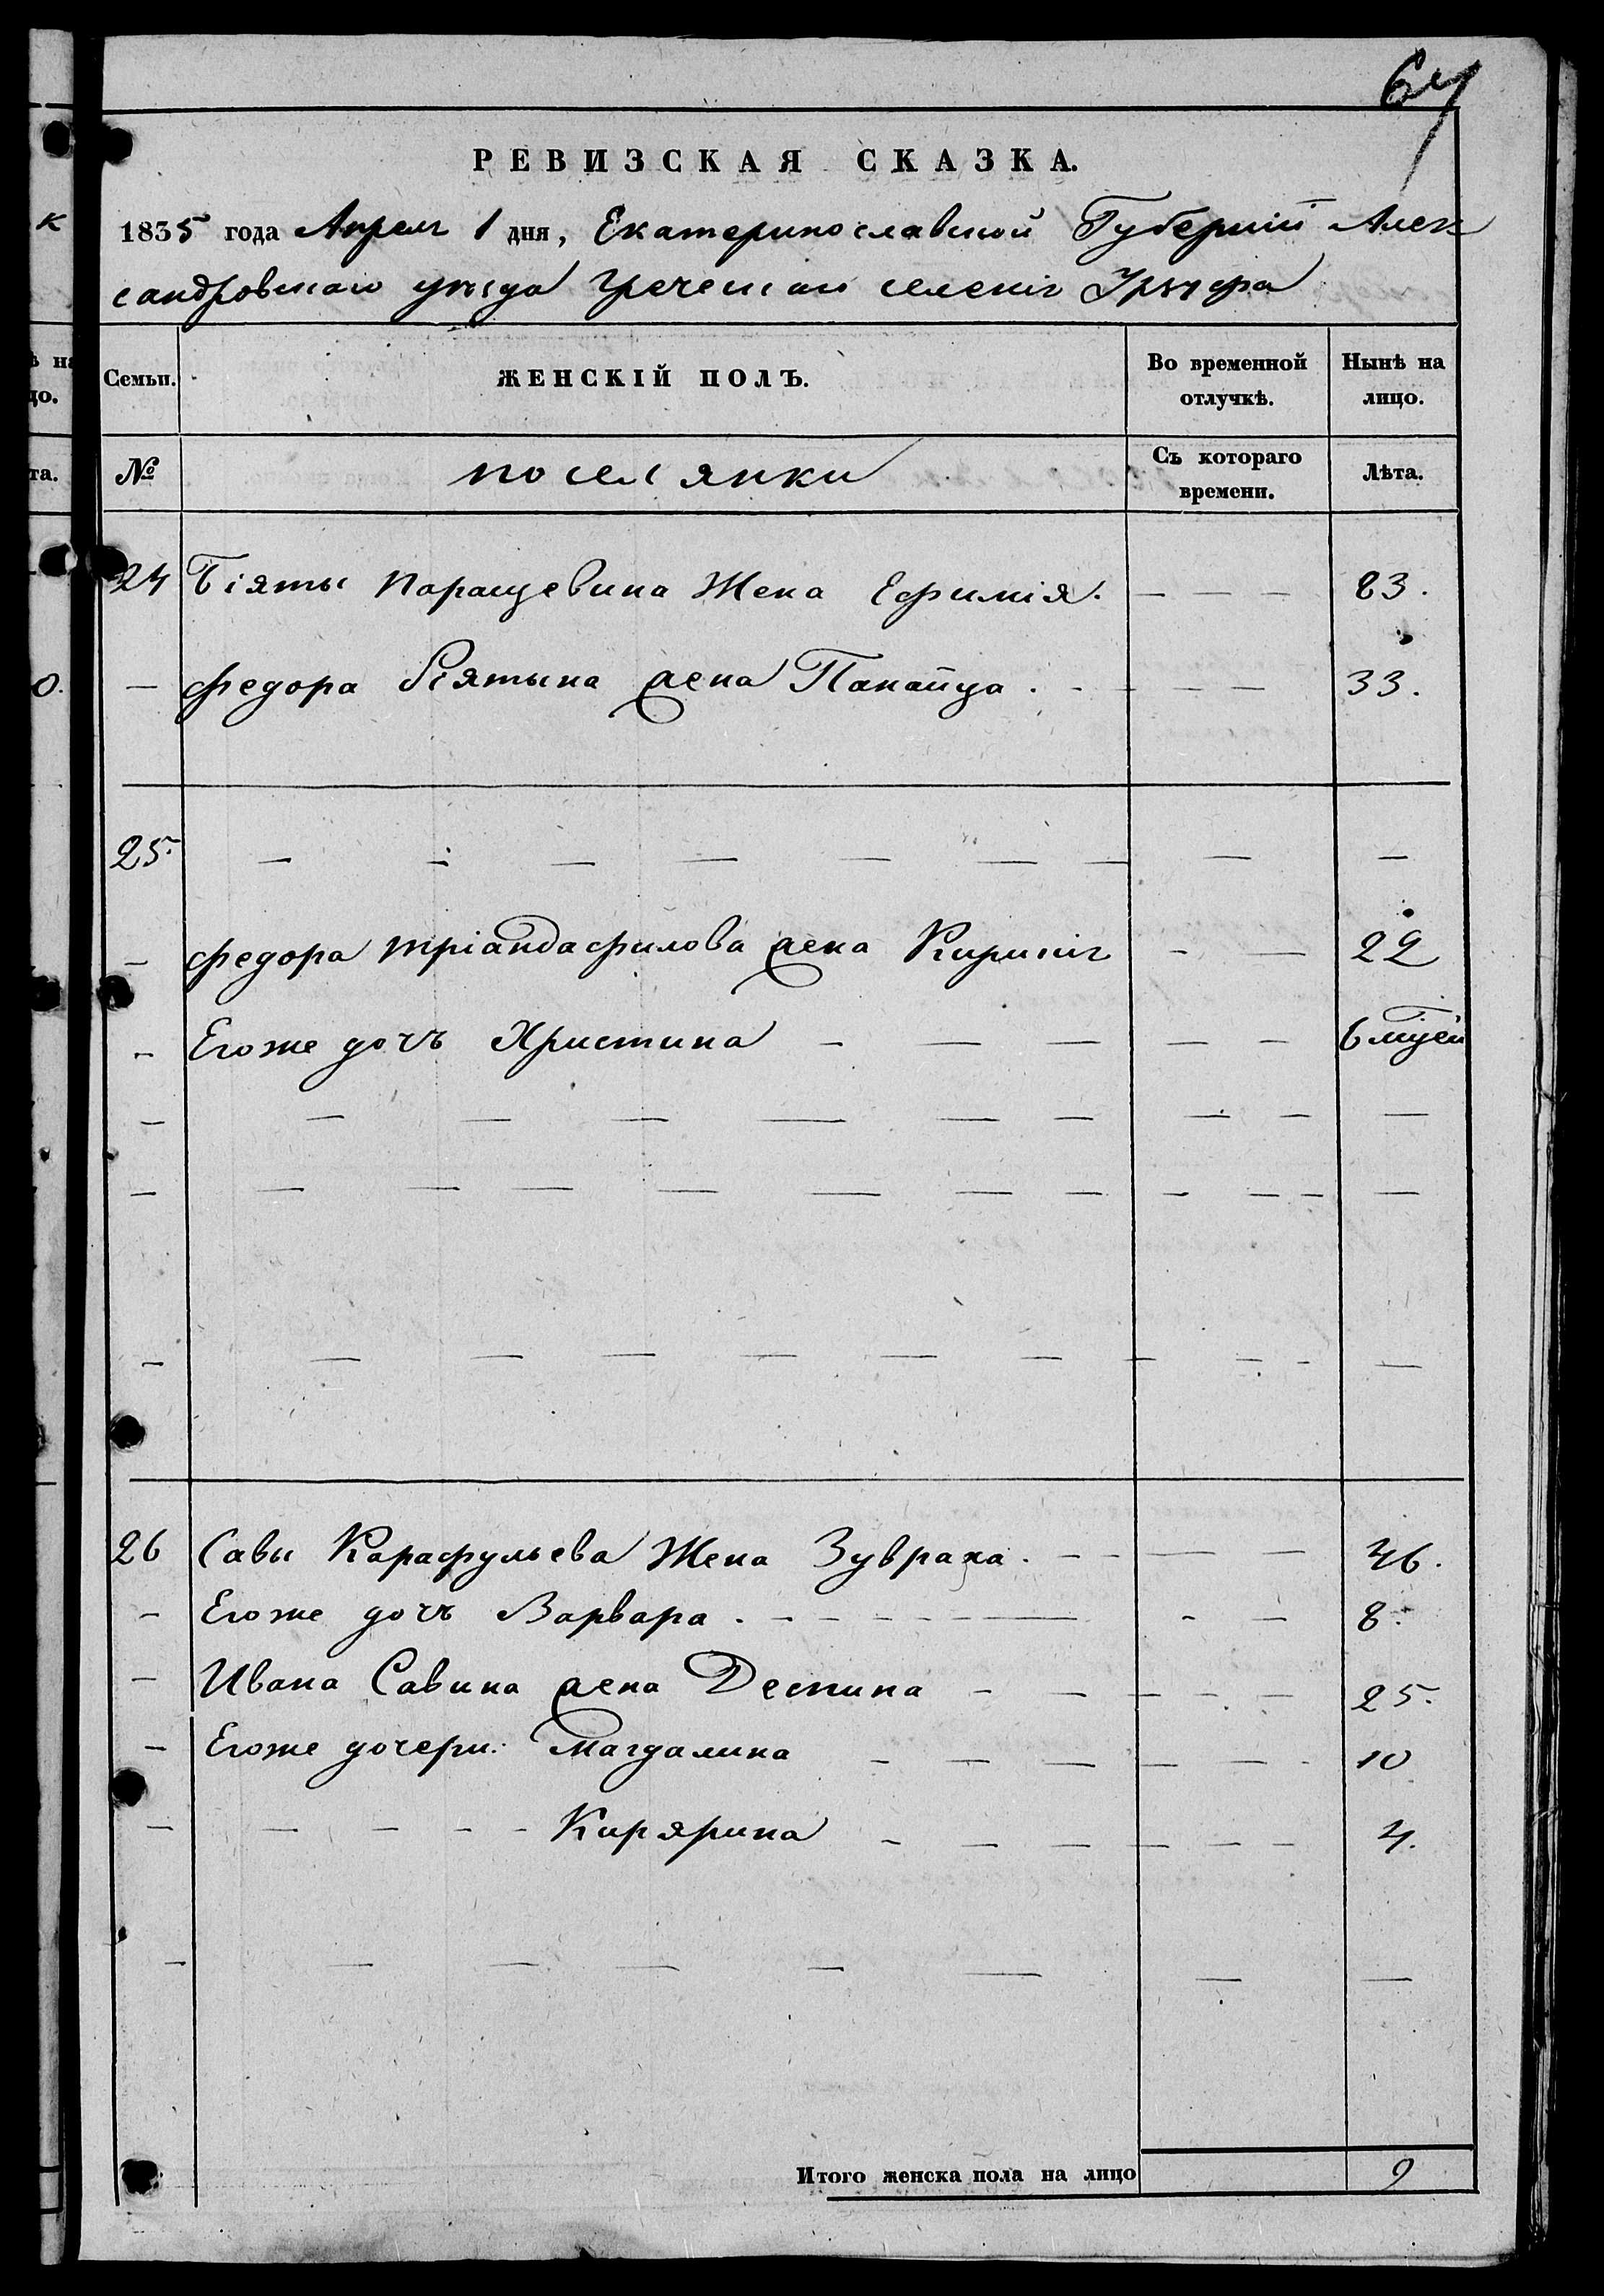 64
РЕВИЗСКАЯ СКАЗКА.
1835 года Апреля 1 дня, Екатеринославской Губернии Алек
сандровскаго уѣзда греческаго селенія
Семьи. ЖЕНСКІЙ ПОЛЪ. Во временной отлучкѣ. Нынѣ на лицо.
№ поселянки Съ котораго времени. Лѣта.
24 Біяты Паращевина Жена Ефимія. — — — 83.
— федора Біятына жена Панаица. — — — 33.
25. — — — — — — — — —
— федора тріандафилова жена Кирикія — — 22
— Егоже дочь Христина — — — — — 6 мцей
— — — — — — — — — —
— — — — — — — — — — — —
— — — — — — — — — — —
26 Савы Карафульева Жена Зуврака. — — — — 46.
— Егоже дочь Варвара. — — — — — — — — 8.
— Ивана Савина жена Деспина — — — — — 25.
— Егоже дочери: Магдалина — — — — — — 10
— — — — — Кирярина — — — — — — 4.
— — — — — — — —
Итого женска пола на лицо 9
к
ѣ на
цо.
та.
0.